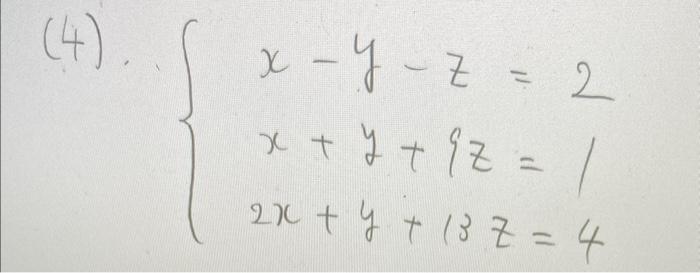 (4). x - y - z = 2
x + y + 9z = 1
2x + y + 13z = 4